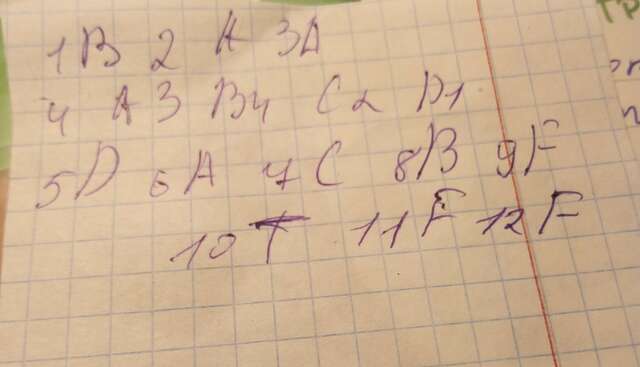 1B 2 A 3A
4 A3 B4 C2 D1
5D 6A 7C 8B 9F
10T 11F 12F